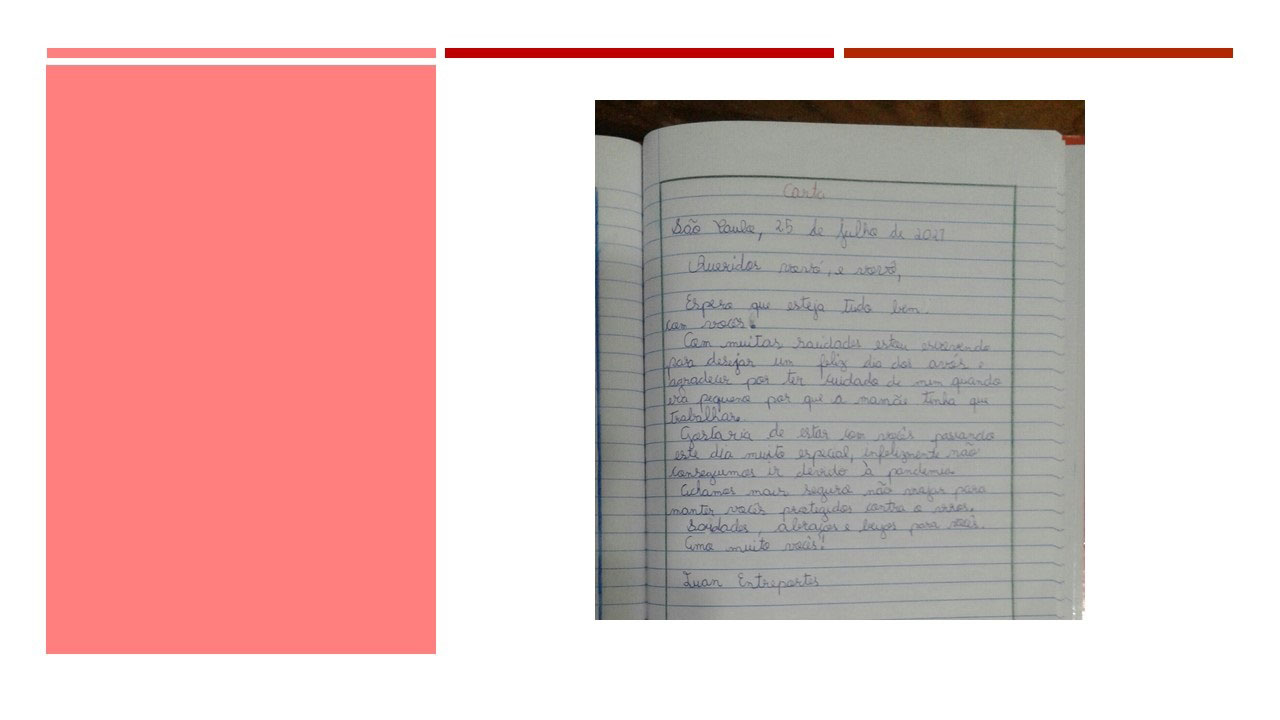 Carta
São Paulo, 25 de julho de 2021
Queridos vovó, e vovô,
Espero que esteja tudo bem
com vocês!
Com muitas saudades estou escrevendo
para desejar um feliz dia dos avós e
agradecer por ter cuidado de mim quando
era pequeno por que a mamãe tinha que
trabalhar.
Gostaria de estar com vocês passando
este dia muito especial, infelizmente não
conseguimos ir devido à pandemia.
Achamos mais seguro não viajar para
manter vocês protegidos contra o vírus.
Saudades, abraços e beijos para vocês.
Amo muito vocês!
Luan Entreportes